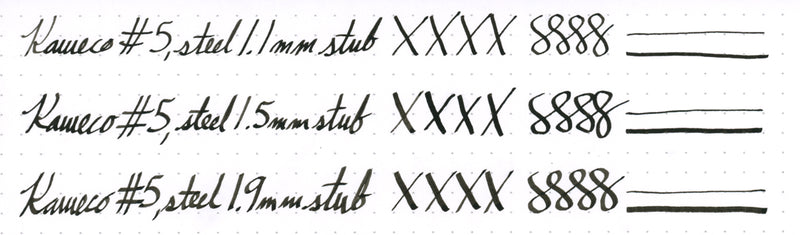 Kaweco #5, steel 1.1mm stub XXXX 8888
Kaweco #5, steel 1.5mm stub XXXX 8888
Kaweco #5, steel 1.9mm stub XXXX 8888